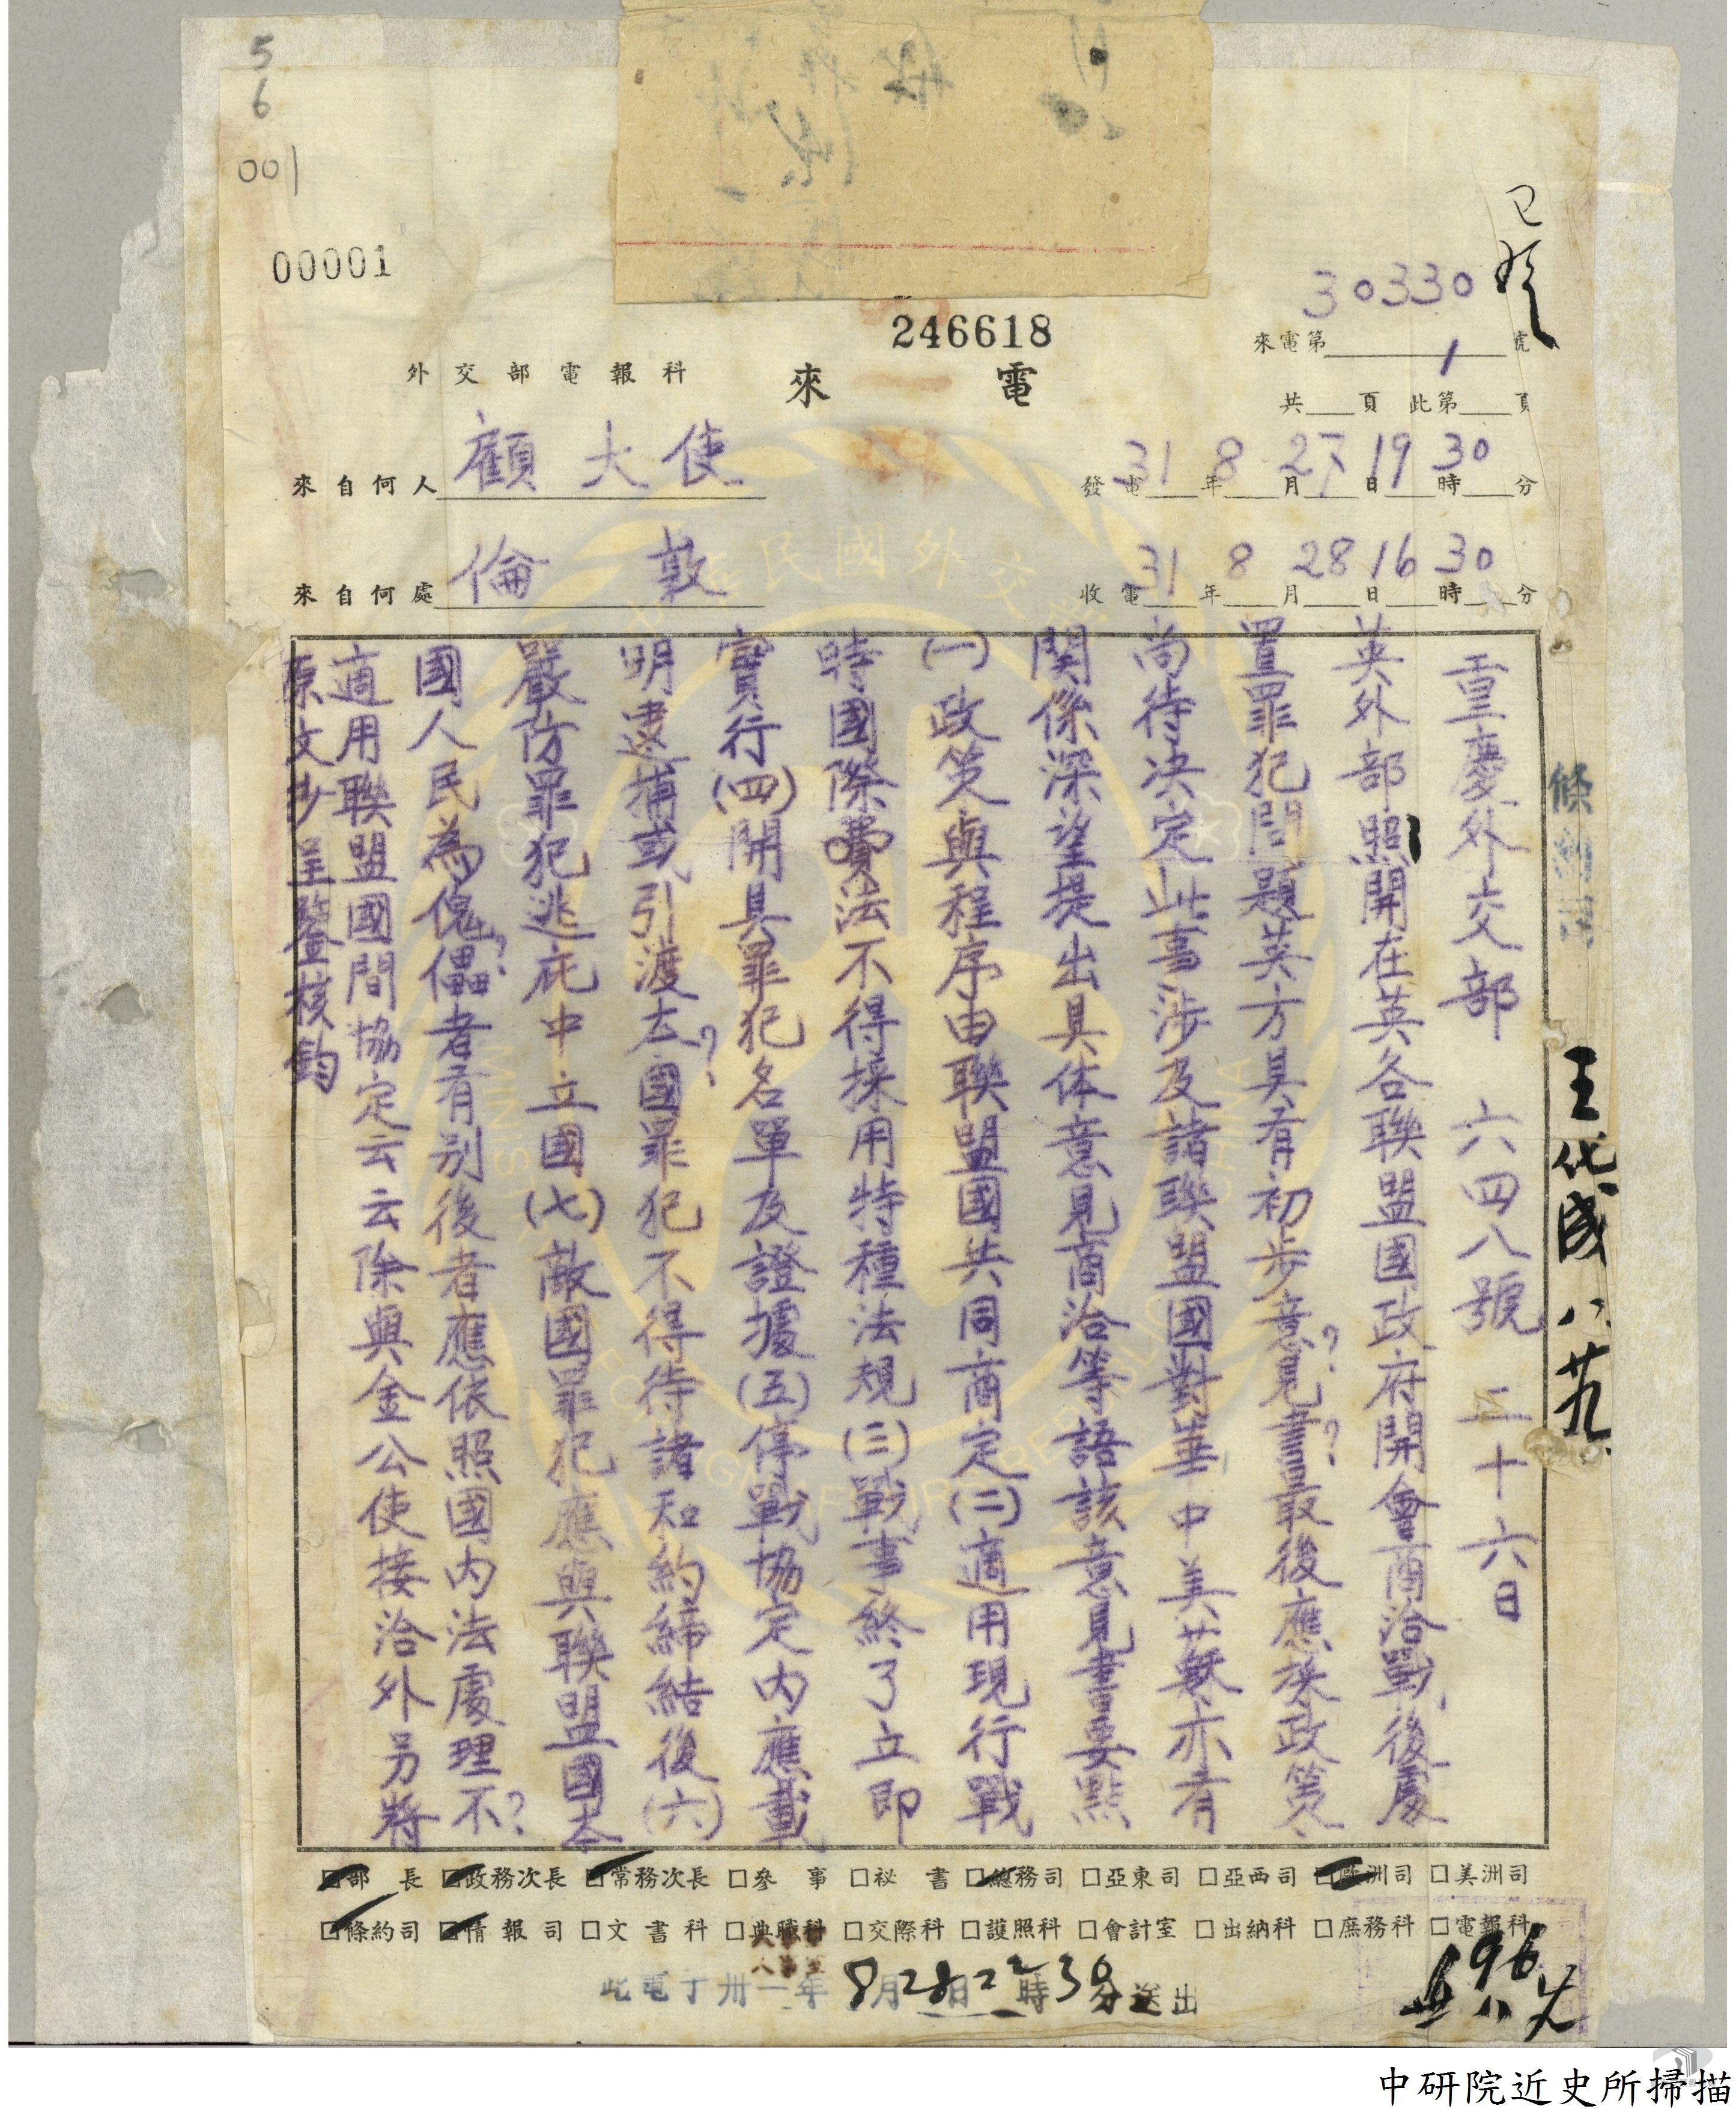 5
6
001
00001
246618
30330
來電第 號
1
外交部電報科
來電
共 頁 此第 頁
來自何人 顧大使
發電 31 年 8 月 27 日 19 時 30 分
來自何處 倫敦
收電 31 年 8 月 28 日 16 時 30 分
重慶外交部 六四八號 二十六日
英外部照開在英各聯盟國政府開會商洽戰後處
置罪犯問題英方具有初步意?見?書最後應採政策
尚待決定此事涉及諸聯盟國對華中美蘇亦有
関係深望提出具体意見商洽等語該意見書要點
(一)政策與程序由聯盟國共同商定(二)適用現行戰
時國際法不得採用特種法規(三)戰事終了立即
實行(四)開具罪犯名單及證據(五)停戰協定內應載
明逮捕或引渡?國罪犯不得待諸和約締結後(六)
嚴防罪犯逃庇中立國(七)敵國罪犯應與聯盟國本
國人民為傀?儡者有別後者應依照國內法處理不?
適用聯盟國間協定云云除與金公使接洽外另將
原文抄呈鑒核鈞
條約司
王化成 八 廿九
□部長 □政務次長 □常務次長 □參事 □祕書 □總務司 □亞東司 □亞西司 □歐洲司 □美洲司
□條約司 □情報司 □文書科 □典職科 □交際科 □護照科 □會計室 □出納科 □庶務科 □電報科
此電于卅一年 8 月 28 日 22 時 30 分送出
中研院近史所掃描